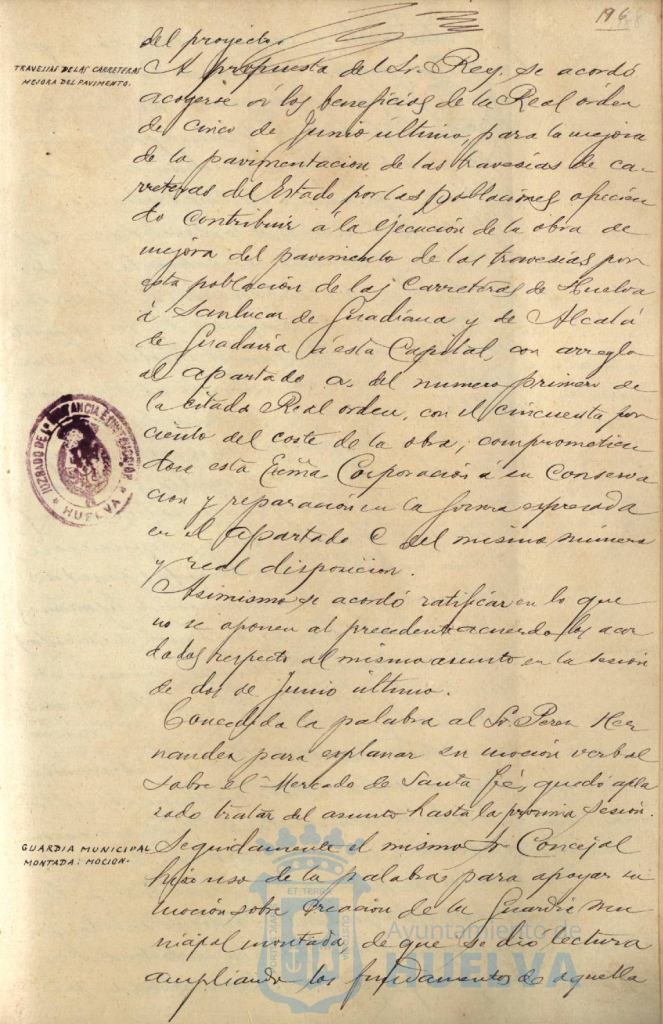 196
del proyecto.
TRAVESIAS DE LAS CARRETERAS
MEJORA DEL PAVIMENTO.
A propuesta del Sr. Rey, se acordó
acogerse á los beneficios de la Real órden
de cinco de Junio último, para la mejora
de la pavimentacion de las travesias de ca-
rreteras del Estado por las poblaciones, ofrecien
do contribuir á la ejecución de la obra de
mejora del pavimento de las travesias por
esta poblacion de las Carreteras de Huelva
á Sanlucar de Guadiana y de Alcalá
de Guadaira á esta Capital, con arreglo
al apartado a. del numero primero de
la citada Real orden, con el cincuenta por
ciento del coste de la obra; comprometien
dose esta Exma Corporación a su conserva
cion y reparación en la forma expresada
en el apartado C del mismo número
y real disposicion.
JUZGADO DE 1ª INSTANCIA E INSTRUCCION
HUELVA
Asimismo se acordó ratificar en lo que
no se oponen al precedente acuerdo, los acor
dados respecto al mismo asunto en la sesión
de dos de Junio último.
Concedida la palabra al Sr. Perez Her
nandez para explanar su moción verbal
sobre el Mercado de Santa Fé, quedó apla
zado tratar del asunto hasta la próxima sesión.
GUARDIA MUNICIPAL
MONTADA: MOCION-
Seguidamente el mismo Sr Concejal
hizo uso de la palabra para apoyar su
moción sobre creación de la Guardia mu
nicipal montada, de que se dió lectura
ampliando los fundamentos de aquella
Ayuntamiento de
HUELVA